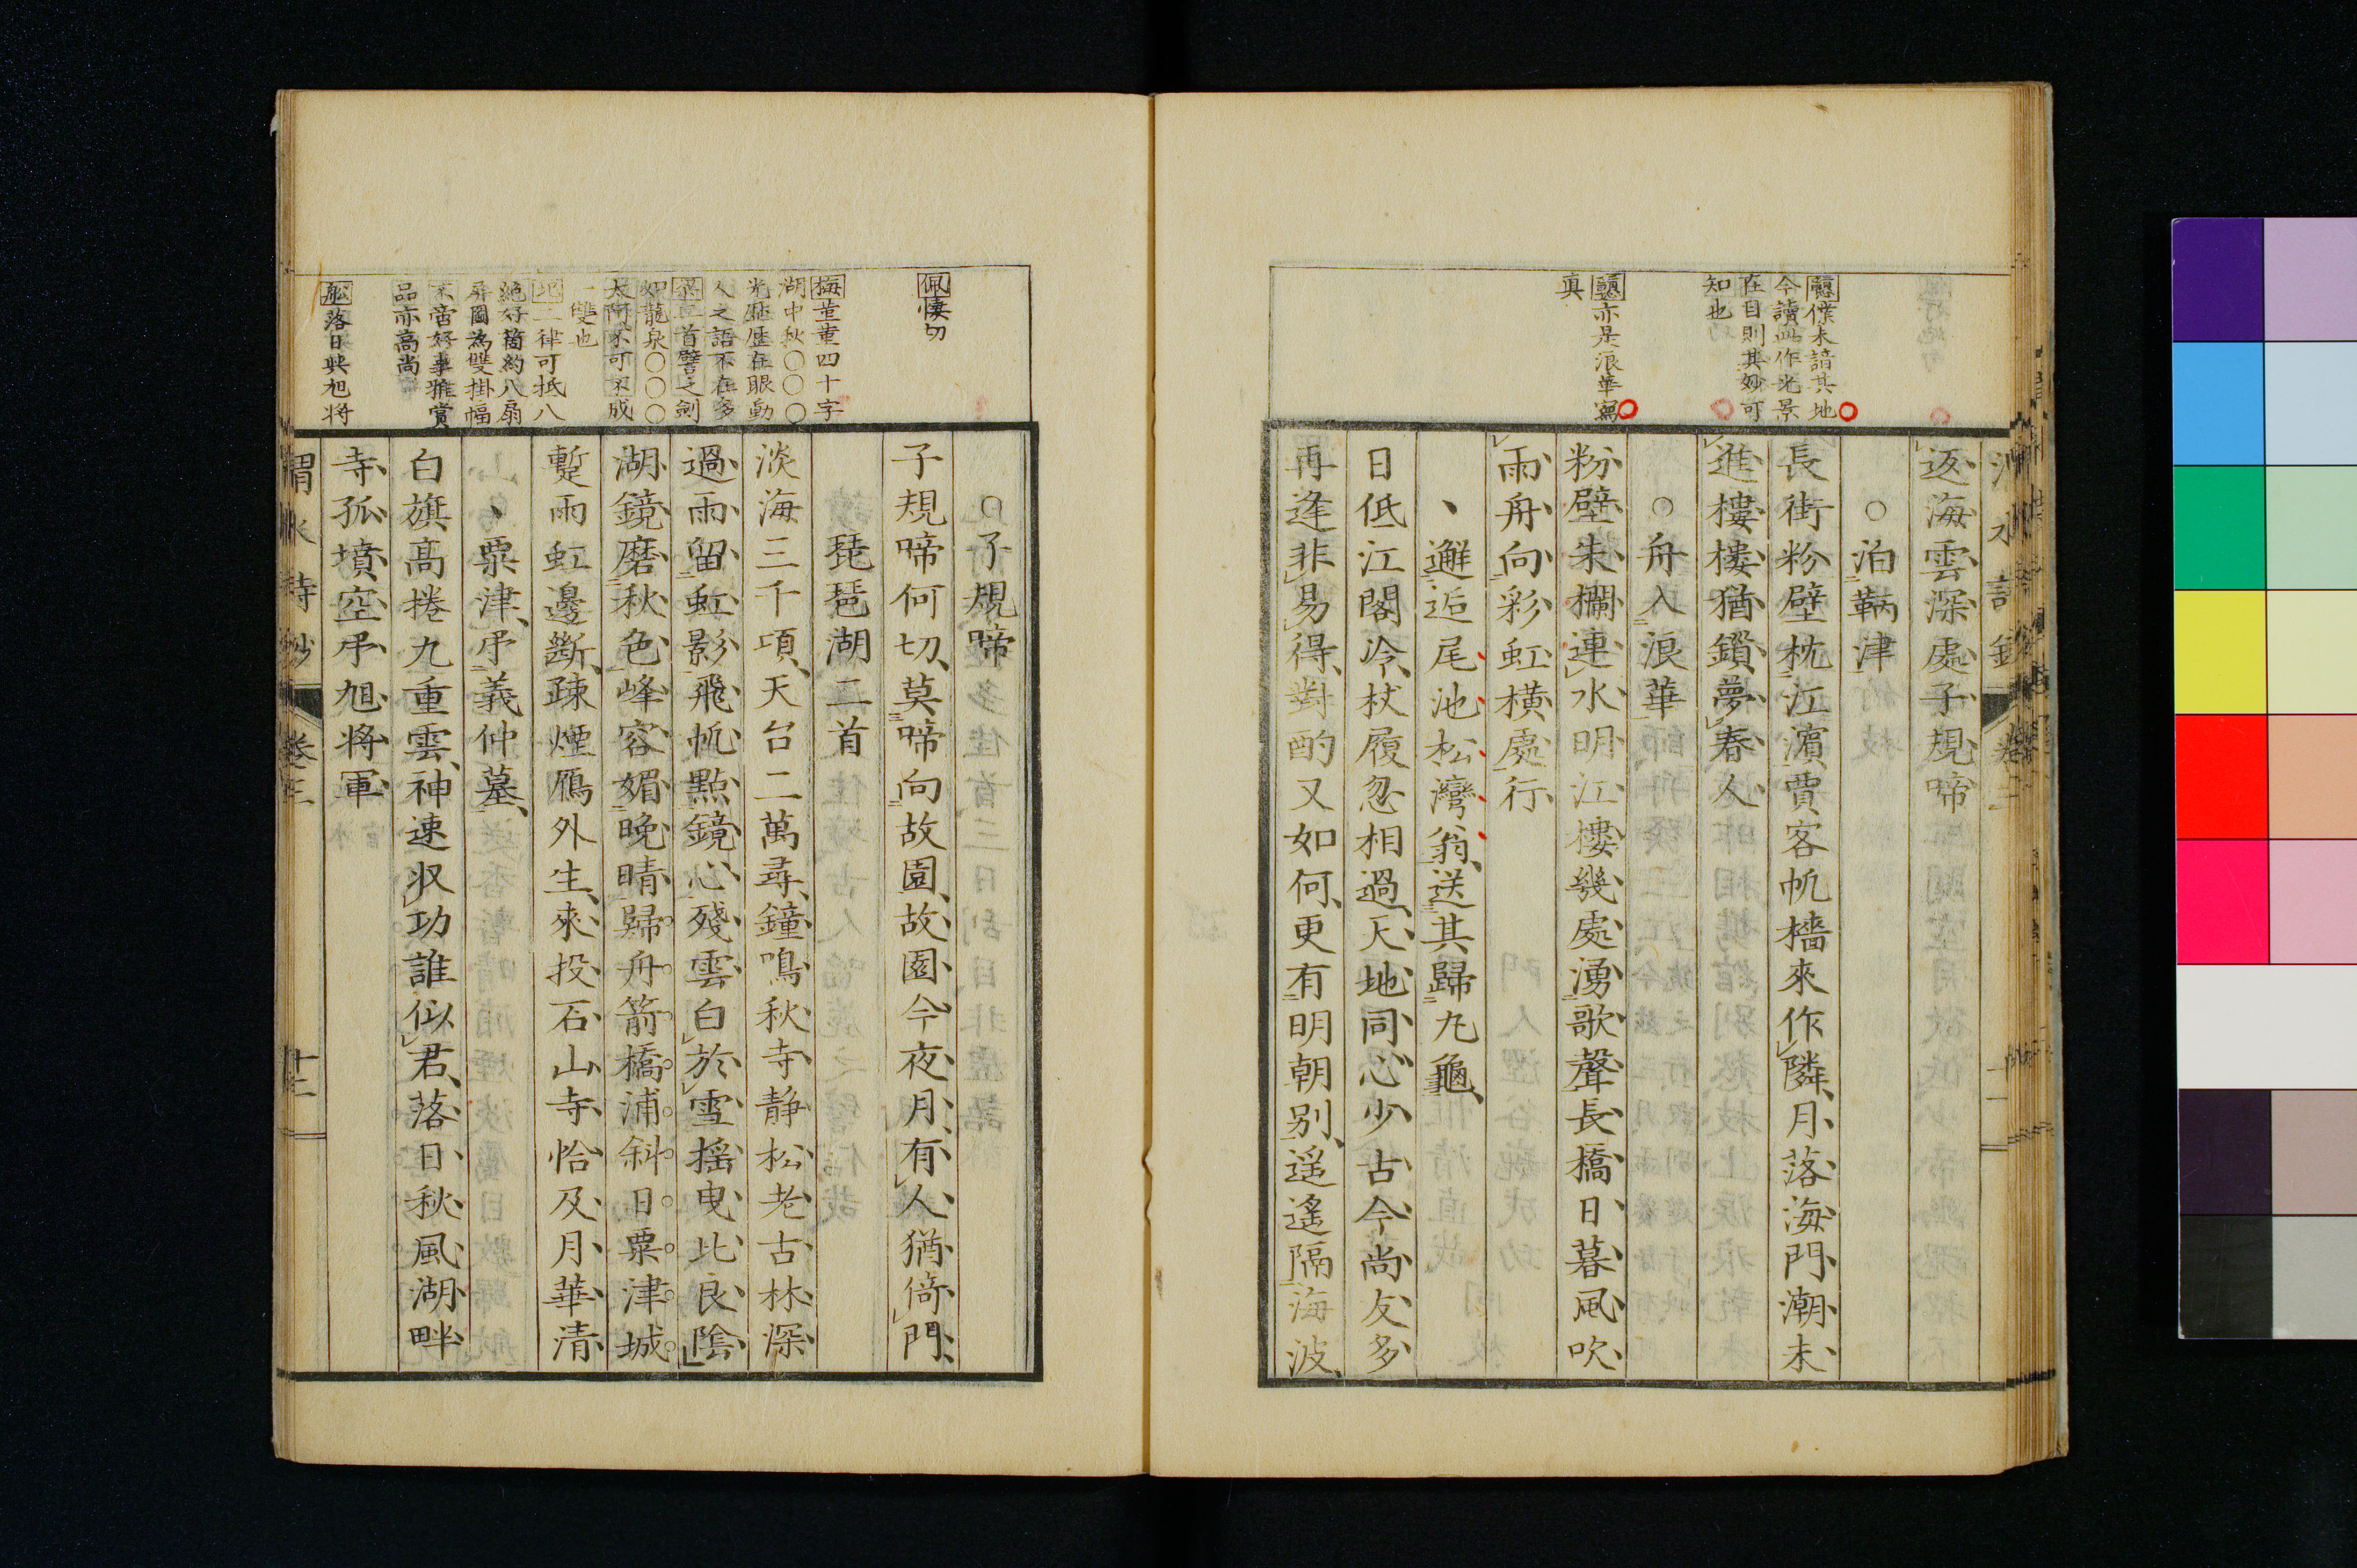 返海雲深處子規啼
○泊鞆津
長街粉壁枕江濱賈客帆檣來作隣月落海門潮未
進樓樓猶鎖夢春人
○舟入浪華
粉壁朱欄連水明江樓幾處湧歌聲長橋日暮風吹
雨舟向彩虹橫處行
邂逅尾池松灣翁送其歸九龜
日低江閣冷杖履忽相過天地同心少古今尚友多
再逢非易得對酌又如何更有明朝別遥遙隔海波
僕未諳其地
今讀此作光景
在目則其妙可
知也
亦是浪華寫
真
○子規啼
子規啼何切莫啼向故園故園今夜月有人猶倚門
琵琶湖二首
淡海三千項天台二萬尋鐘鳴秋寺静松老古林深
過雨留虹影飛帆點鏡心殘雲白於雪揺曳比良陰
湖鏡磨秋色峰容媚晩晴歸舟箭橋浦斜日粟津城
蹔雨虹邊斷疎煙鴈外生來投石山寺恰及月華清
粟津弔義仲墓
白旗高捲九重雲神速収功誰似君落日秋風湖畔
寺孤墳空弔旭将軍
渭水詩鈔
卷三
十二
佩悽切
梅董董四十字
湖中秋○○○
光歷歷在眼動
人之語不在多
二首譬之劍
如龍泉○○○
太阿不可不成
一雙也
二律可抵八
絶好簡約八扇
屏圖為雙掛幅
不啻好事雅賞
品亦高尚
舩落日與旭将